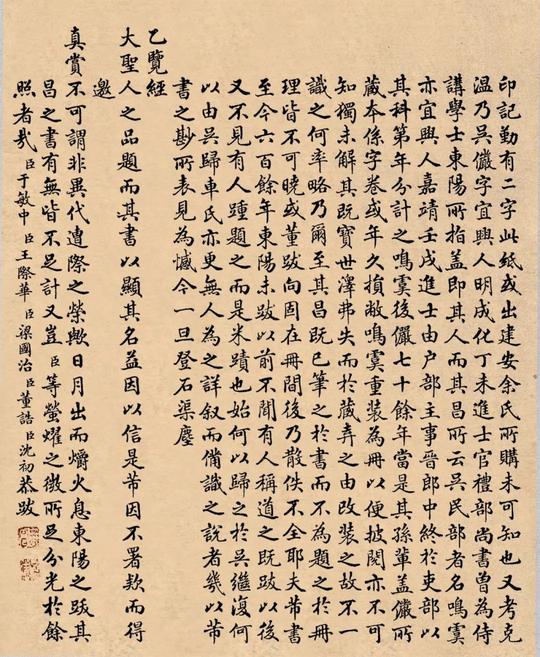 印記勤有二字此紙或出建安余氏所購未可知也又考克
温乃吴儼字宜興人明成化丁未進士官禮部尚書曽為侍
講學士東陽所指盖即其人而其昌所云吴民部者名鳴虞
亦宜興人嘉靖壬戌進士由户部主事晉郎中終於吏部以
其科第年分計之鳴虞後儼七十餘年當是其孫輩盖儼所
藏本係字卷或年久損敝鳴虞重装為冊以便披閲亦不可
知獨未解其既寶世澤弗失而於藏弆之由改装之故不一
識之何率略乃爾至其昌既已筆之於書而不為題之於冊
理皆不可曉或董跋向固在冊間後乃散佚不全耶夫芾書
至今六百餘年東陽未跋以前不聞有人稱道之既跋以後
又不見有人踵題之而是米蹟也始何以歸之於吴繼復何
以由吴歸車氏亦更無人為之詳叙而備識之說者幾以芾
書之尠所表見為憾今一旦登石渠塵
乙覽經
大聖人之品題而其書以顯其名益因以信是芾因不署款而得
邀
真賞不可謂非異代遭際之榮歟日月出而爝火息東陽之跋其
昌之書有無皆不足計又豈臣等螢燿之微所足分光於餘
照者哉臣于敏中臣王際華臣梁國治臣董誥臣沈初恭跋